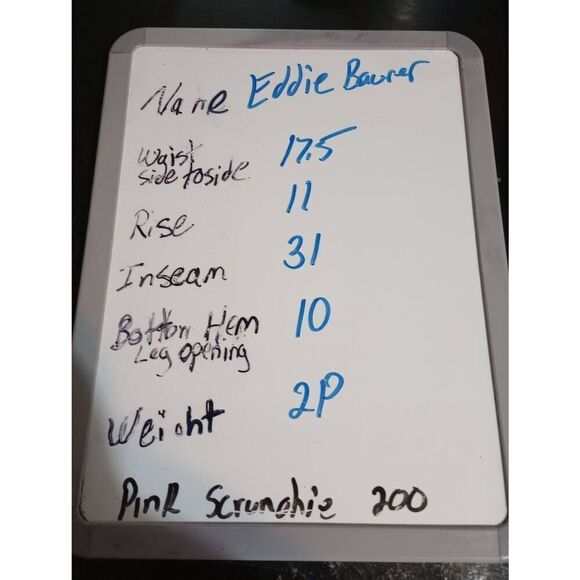 Name Eddie Baurer
Waist
side to side 17.5
Rise 11
Inseam 31
Bottom Hem 10
Leg opening
Weight 2P
Pink Scrunchie 200